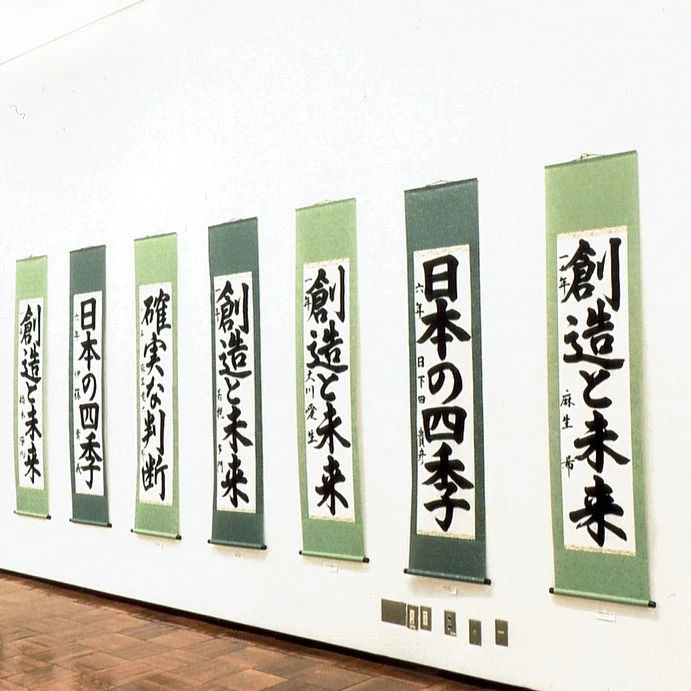 創造と未来
日本の四季
六年
確実な判断
創造と未来
創造と未来
大川愛生
日本の四季
六年
日下田貴彦
創造と未来
麻生希